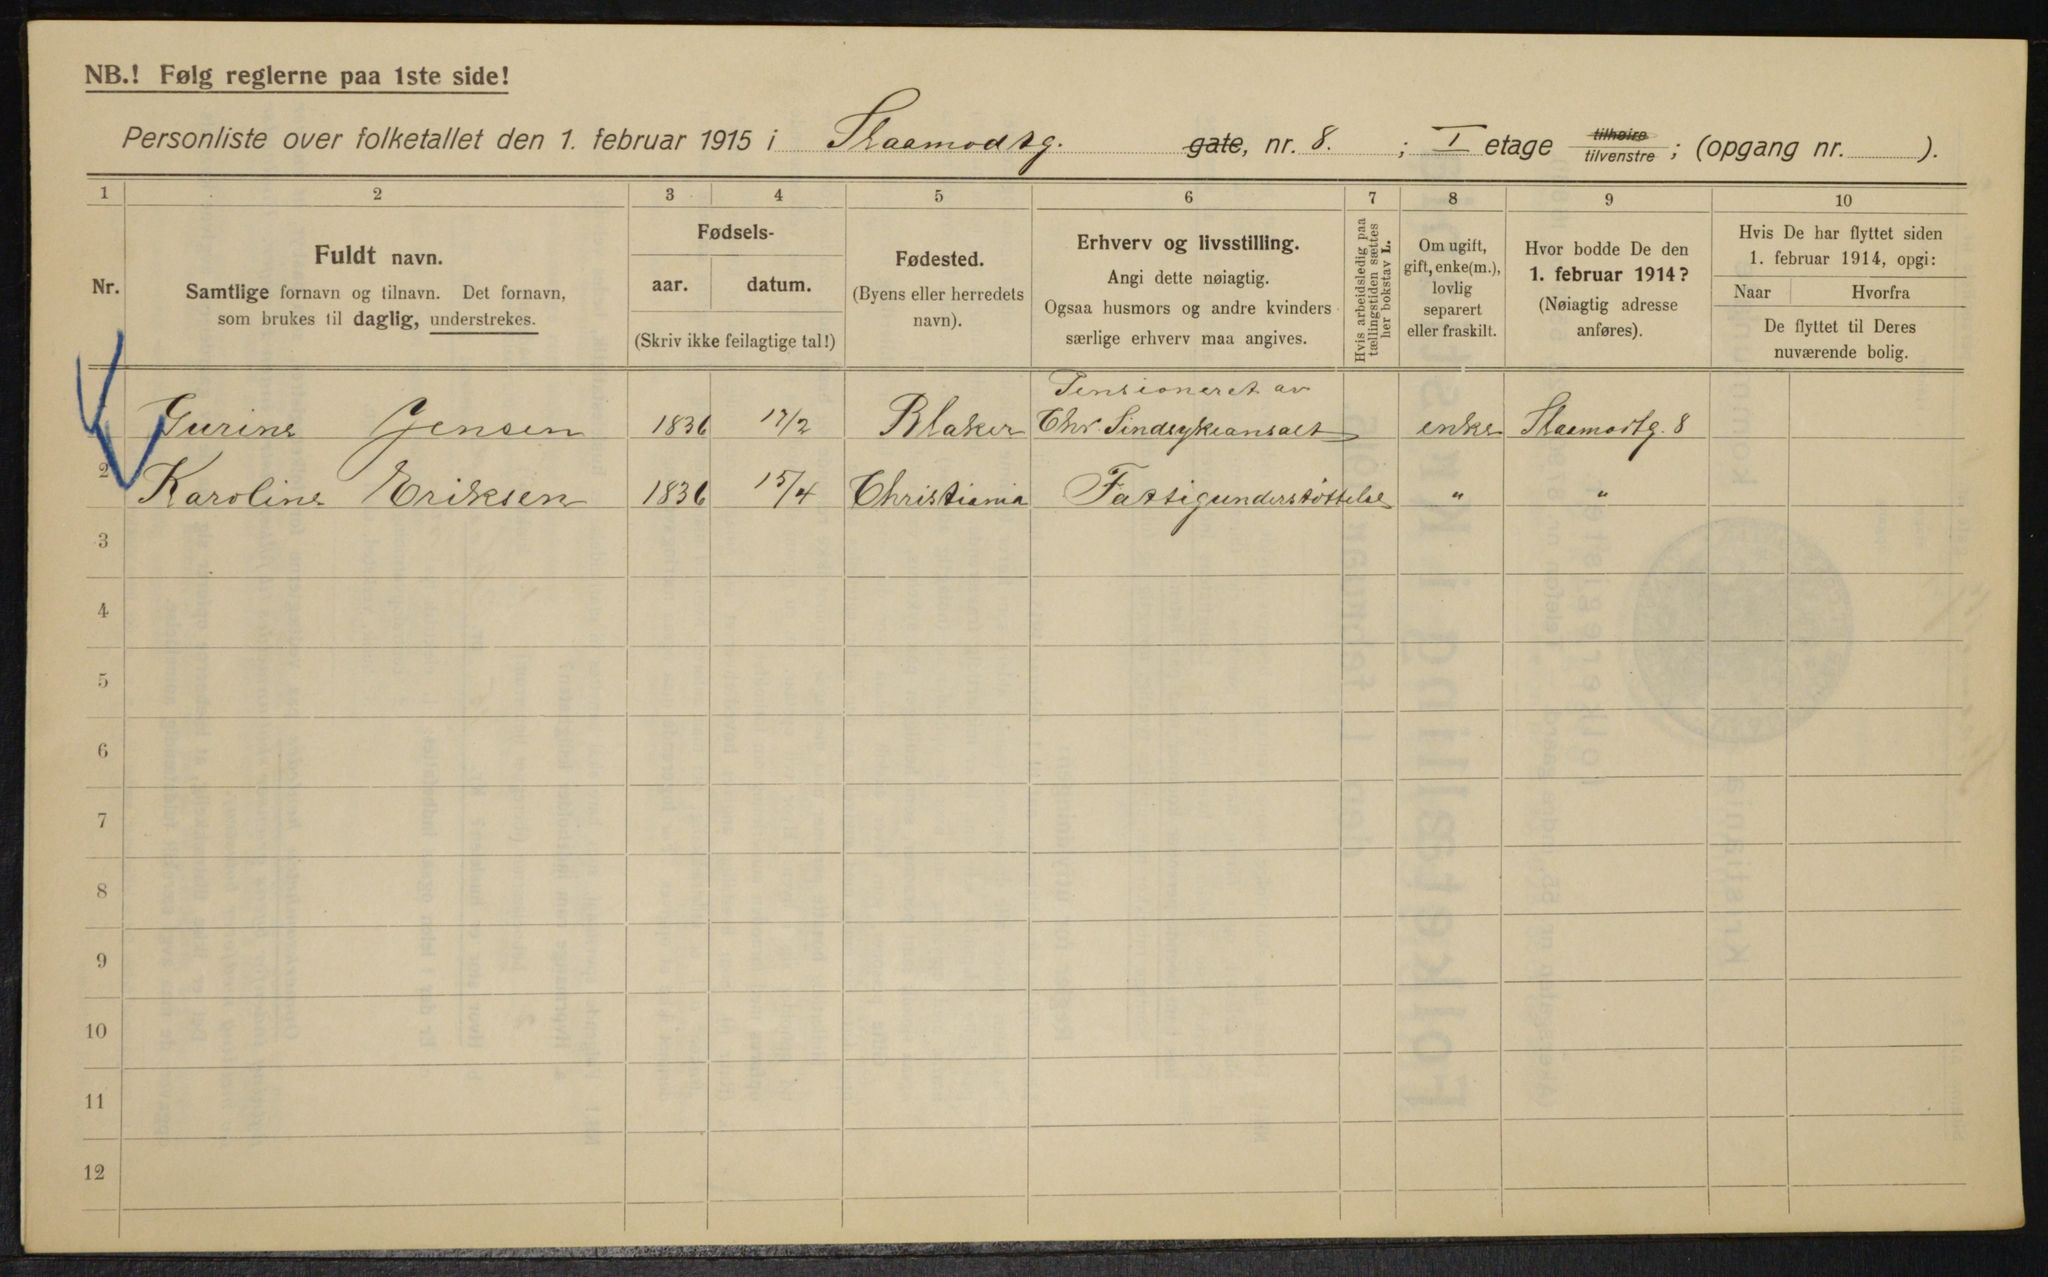 NB.! Følg reglerne paa 1ste side!
Personliste over folketallet den 1. februar 1915 i Slaamodtg. gate, nr. 8. ; I etage tilhøire tilvenstre ; (opgang nr. ).
1 2 3 4 5 6 7 8 9 10
Nr.
Fuldt navn.
Samtlige fornavn og tilnavn. Det fornavn,
som brukes til daglig, understrekes.
Fødsels-
aar. datum.
(Skriv ikke feilagtige tal!)
Fødested.
(Byens eller herredets
navn).
Erhverv og livsstilling.
Angi dette nøiagtig.
Ogsaa husmors og andre kvinders
særlige erhverv maa angives.
Hvis arbeidsledig paa
tællingstiden sættes
her bokstav L.
Om ugift,
gift, enke(m.),
lovlig
separert
eller fraskilt.
Hvor bodde De den
1. februar 1914?
(Nøiagtig adresse
anføres).
Hvis De har flyttet siden
1. februar 1914, opgi:
Naar Hvorfra
De flyttet til Deres
nuværende bolig.
Pensioneret av
Gurine Jensen 1836 17/2 Blaker Chr. Sindsykeansalt enke Slaamodtg. 8
2 Karoline Eriksen 1836 15/4 Christiania Fattigunderstøttelse " "
3
4
5
6
7
8
9
10
11
12